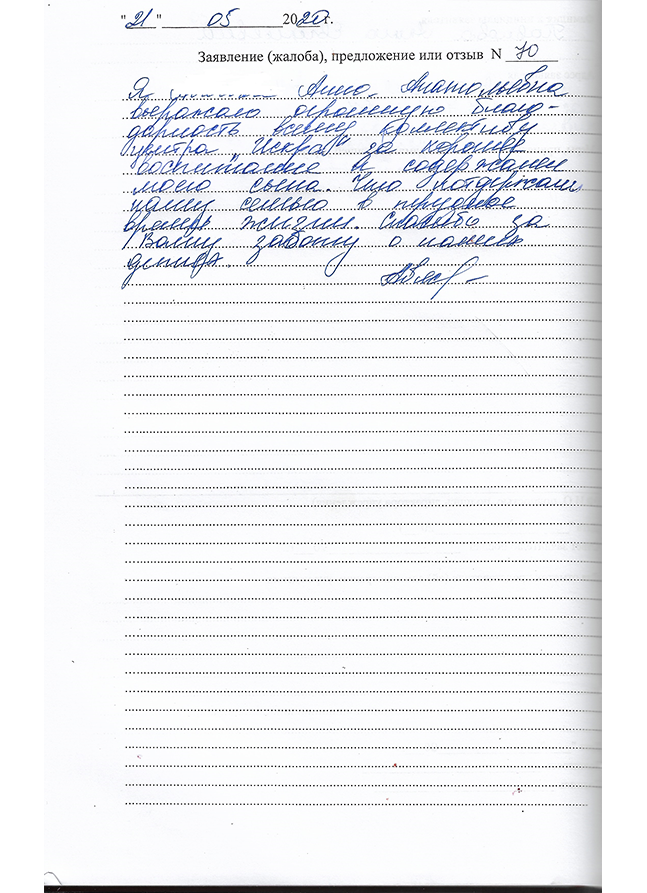 "21" 05 2020г.
Заявление (жалоба), предложение или отзыв N 70
Я Анна Анатольевна
выражаю огромную благо-
дарность всему коллективу
центра "Искра" за хорошее
воспитание и содержание
моего сына. Что потдержали
нашу семью в трудное
время жизни. Спасибо за
Вашу заботу о наших
детях.